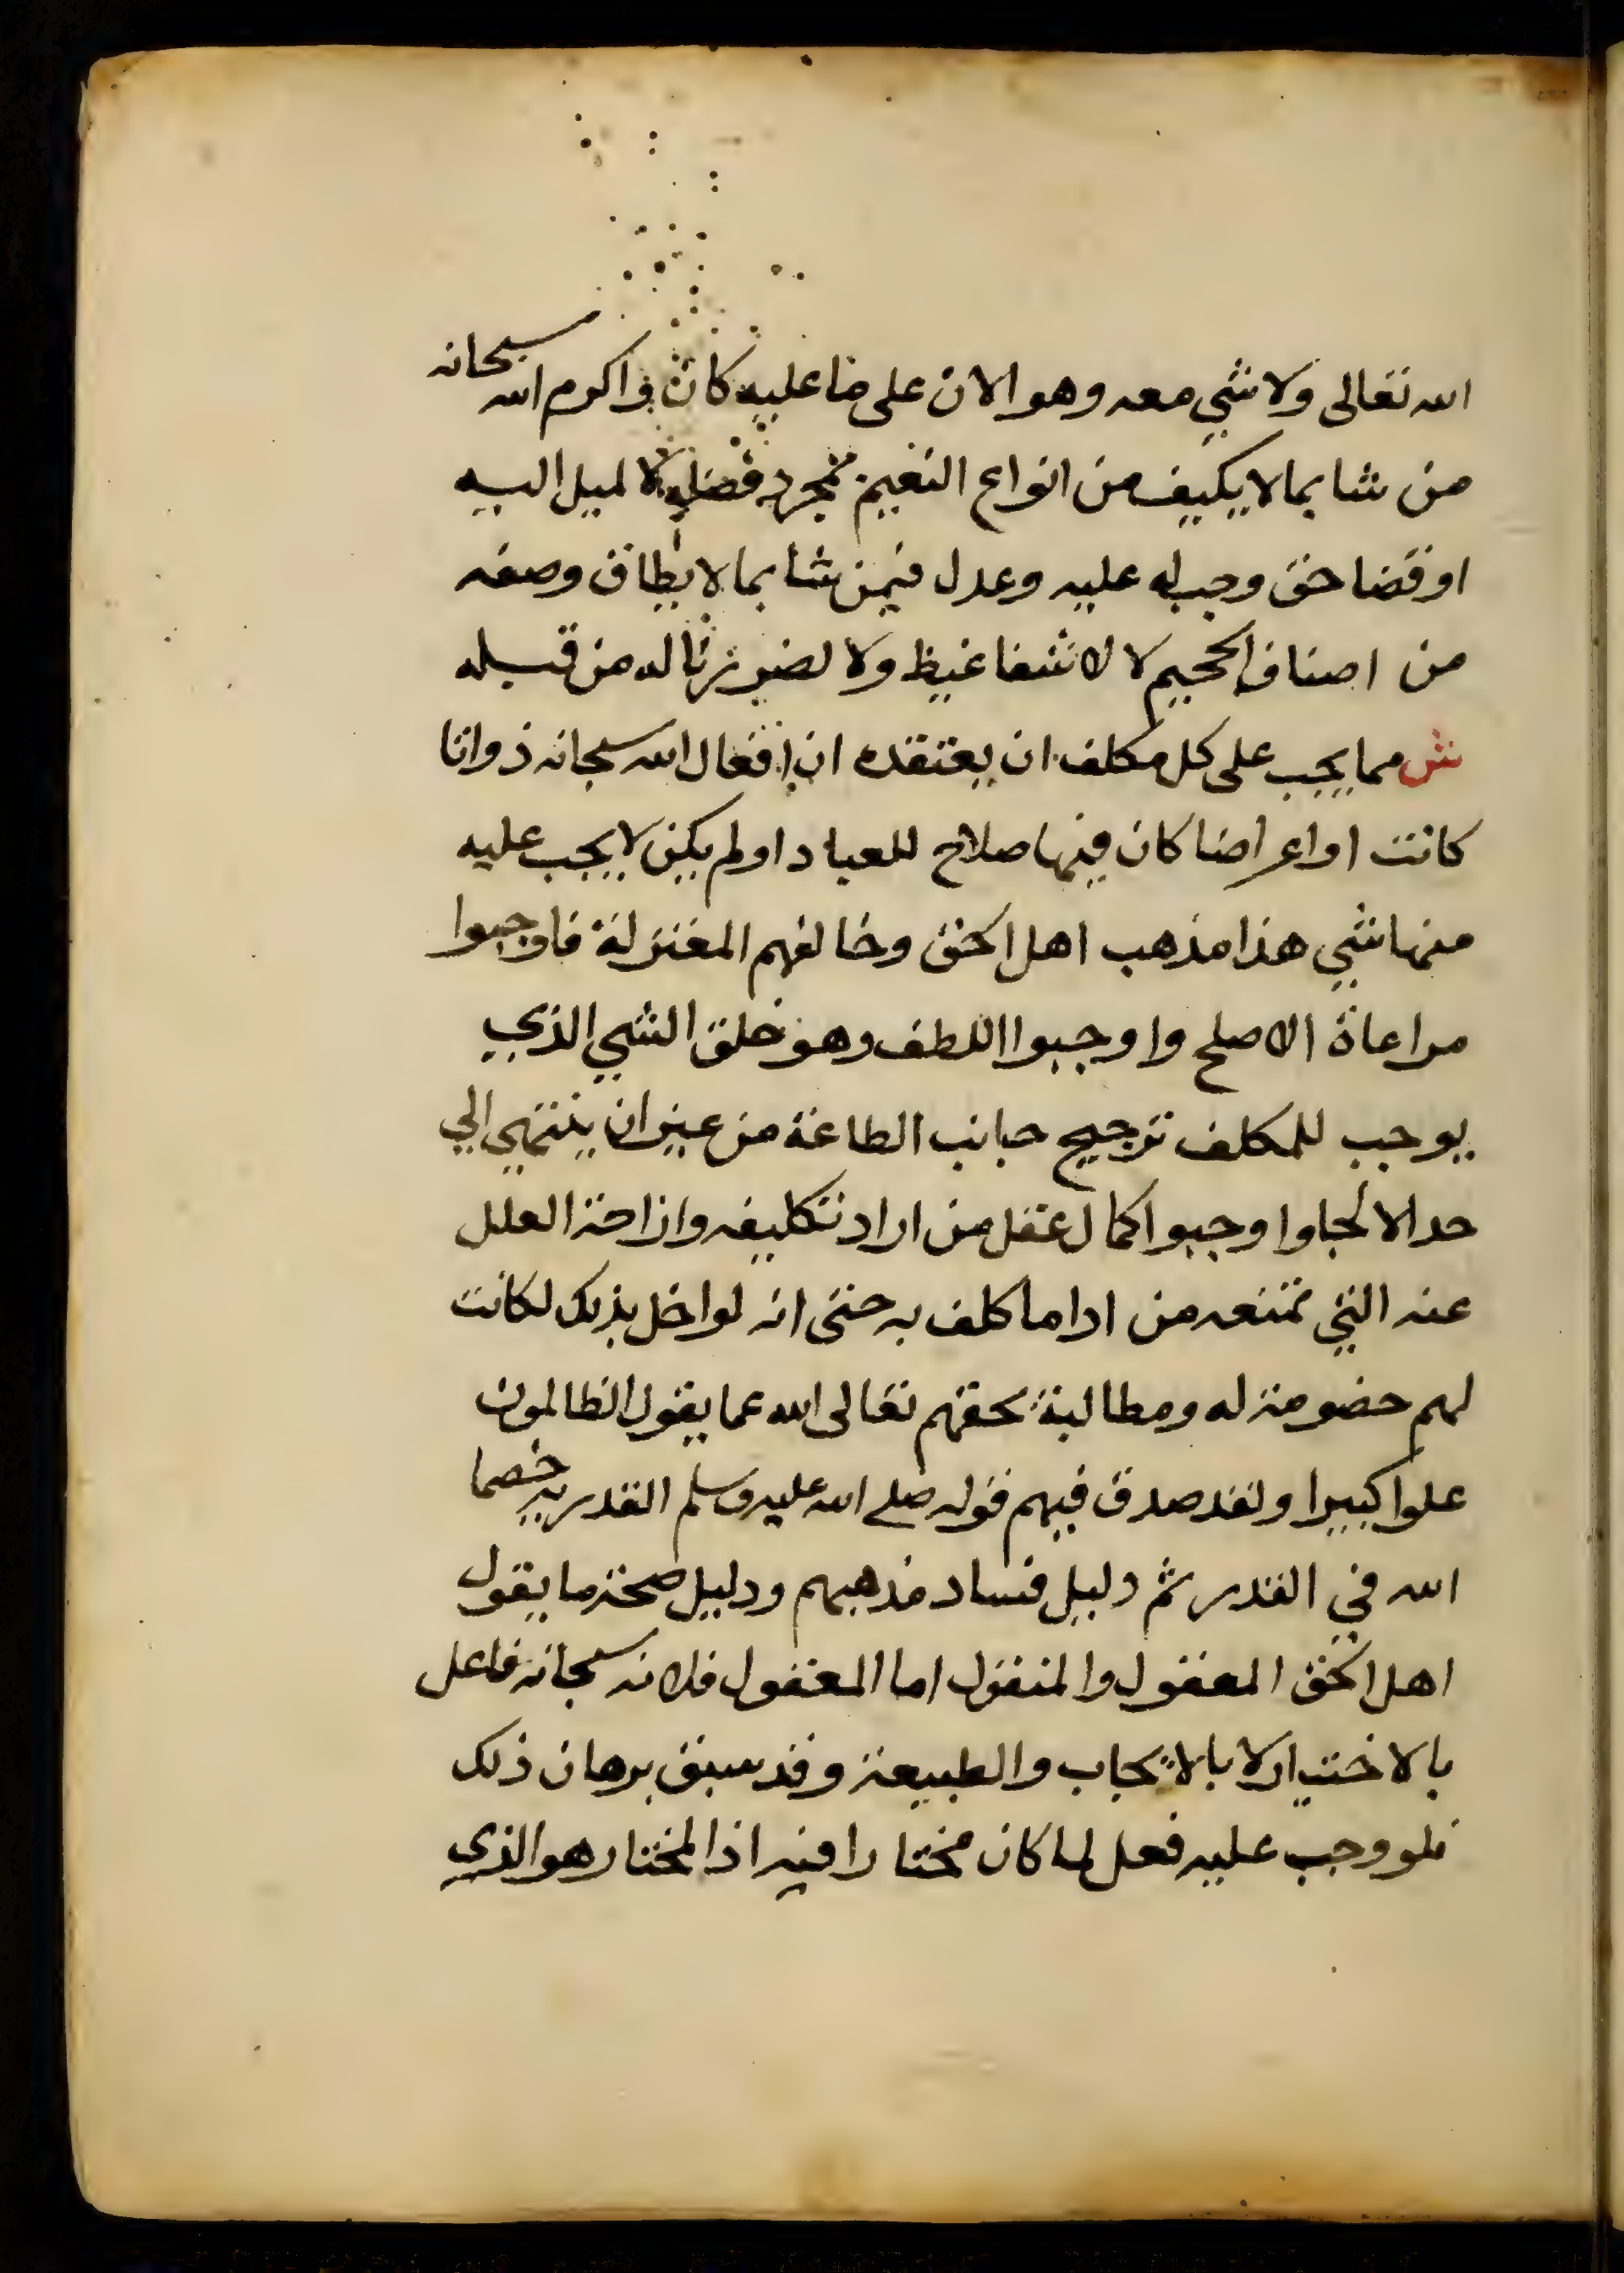 الله تعالى ولا شي معه وهو الان على ما عليه كان واكرم الله سبحانه
من شا بما لا يكيف من انواع النعيم بمجرد فضله لا لميل اليه
او قضا حق وجب له عليه وعدل فيمن شا بما لا يطاق وصفه
من اصناف الجحيم لا لاشفا غيظ ولا لضرر ناله من قبله
ش مما يجب على كل مكلف ان يعتقده ان افعال الله سبحانه ذواتا
كانت او اعراضا كان فيها صلاح للعباد او لم يكن لا يجب عليه
منها شي هذا مذهب اهل الحق وخالفهم المعتزلة فاوجبوا
مراعاة الاصلح واوجبوا اللطف وهو خلق الشي الذي
يوجب للمكلف ترجيح جانب الطاعة من غير ان ينتهي الي
حد الالجا واوجبوا اكمال عقل من اراد تكليفه وازاحة العلل
عنه التي تمنعه من ادا ما كلف به حتى انه لو اخل بذلك لكانت
لهم خصومة له ومطالبة بحقهم تعالى الله عما يقول الظالمون
علوا كبيرا ولقد صدق فيهم قوله صلى الله عليه وسلم القدرية خصما
الله في القدر ثم دليل فساد مذهبهم ودليل صحة ما يقول
اهل الحق المعقول والمنقول اما المعقول فلانه سبحانه فاعل
بالاختيار لا بالايجاب والطبيعة وقد سبق برهان ذلك
فلو وجب عليه فعل لما كان مختارا فيه اذ المختار هو الذي